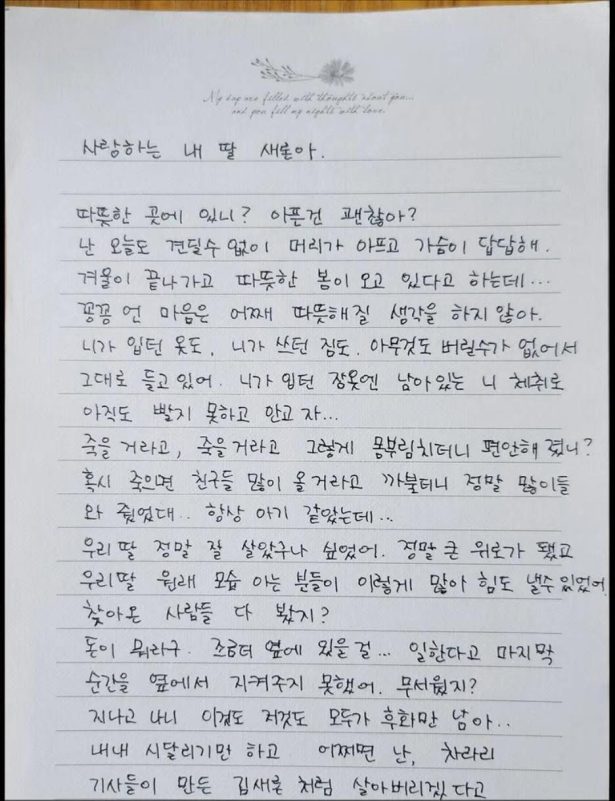 My days are filled with thoughts about you...
and you fill my nights with love.
사랑하는 내 딸 새론아.
따뜻한 곳에 있니? 아픈건 괜찮아?
난 오늘도 견딜수 없이 머리가 아프고 가슴이 답답해.
겨울이 끝나가고 따뜻한 봄이 오고 있다고 하는데...
꽁꽁 언 마음은 어째 따뜻해질 생각을 하지 않아.
니가 입던 옷도, 니가 쓰던 짐도. 아무것도 버릴수가 없어서
그대로 들고 있어. 니가 입던 잠옷엔 남아있는 니 체취로
아직도 빨지 못하고 안고 자...
죽을 거라고, 죽을거라고 그렇게 몸부림치더니 편안해 졌니?
혹시 죽으면 친구들 많이 올 거라고 까불더니 정말 많이들
와 줬었대.. 항상 아기 같았는데...
우리딸 정말 잘 살았구나 싶었어. 정말 큰 위로가 됐고
우리딸 원래 모습 아는 분들이 이렇게 많아 힘도 낼수 있었어
찾아온 사람들 다 봤지?
돈이 뭐라구. 조금더 옆에 있을 걸... 일한다고 마지막
순간을 옆에서 지켜주지 못했어. 무서웠지?
지나고 나니 이것도 저것도 모두가 후회만 남아..
내내 시달리기만 하고 어쩌면 난, 차라리
기사들이 만든 김새론 처럼 살아버리겠다고